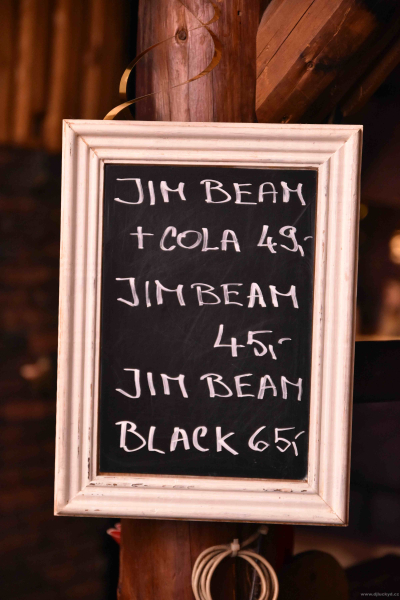 JIM BEAM
+ COLA 49,-
JIM BEAM
45,-
JIM BEAM
BLACK 65,-